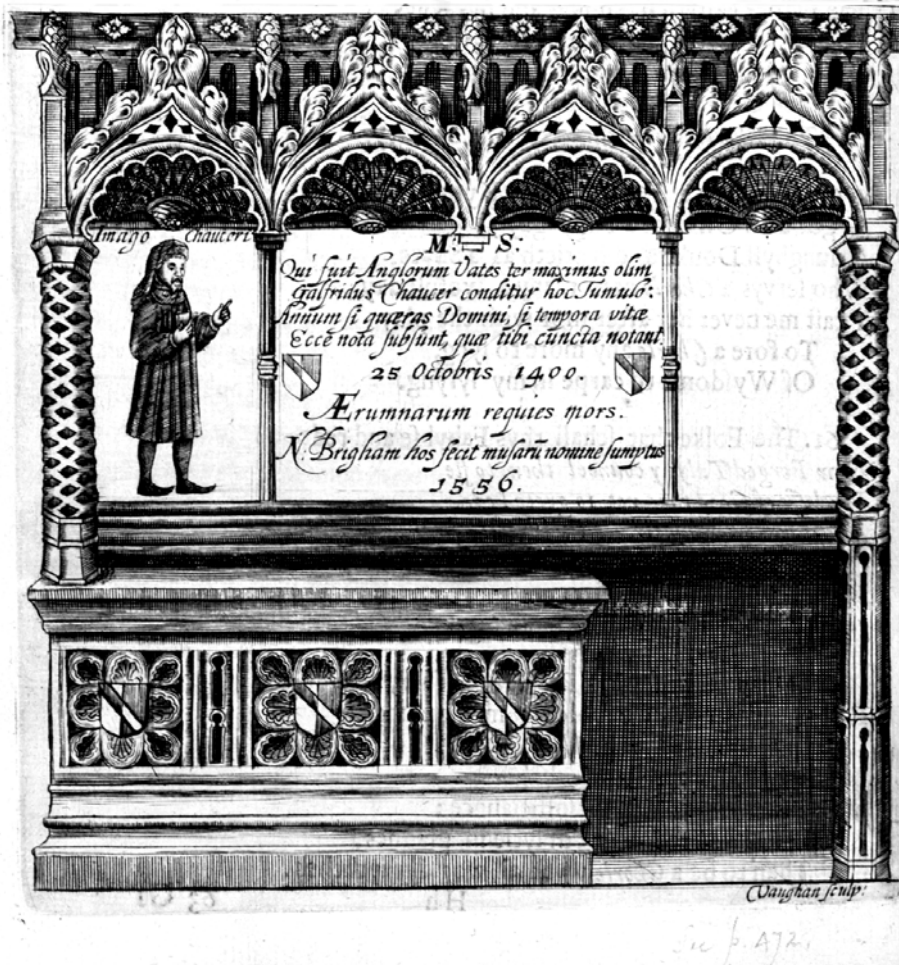 Imago Chauceri
M. S:
Qui fuit Anglorum Vates ter maximus olim
Galfridus Chaucer conditur hoc Tumulo:
Annum si quæras Domini, si tempora vitæ
Ecce nota subsunt, quæ tibi cuncta notant.
25 Octobris 1400.
Ærumnarum requies mors.
N: Brigham hos fecit musarū nomine sumptus
1556.
Vaughan sculp: